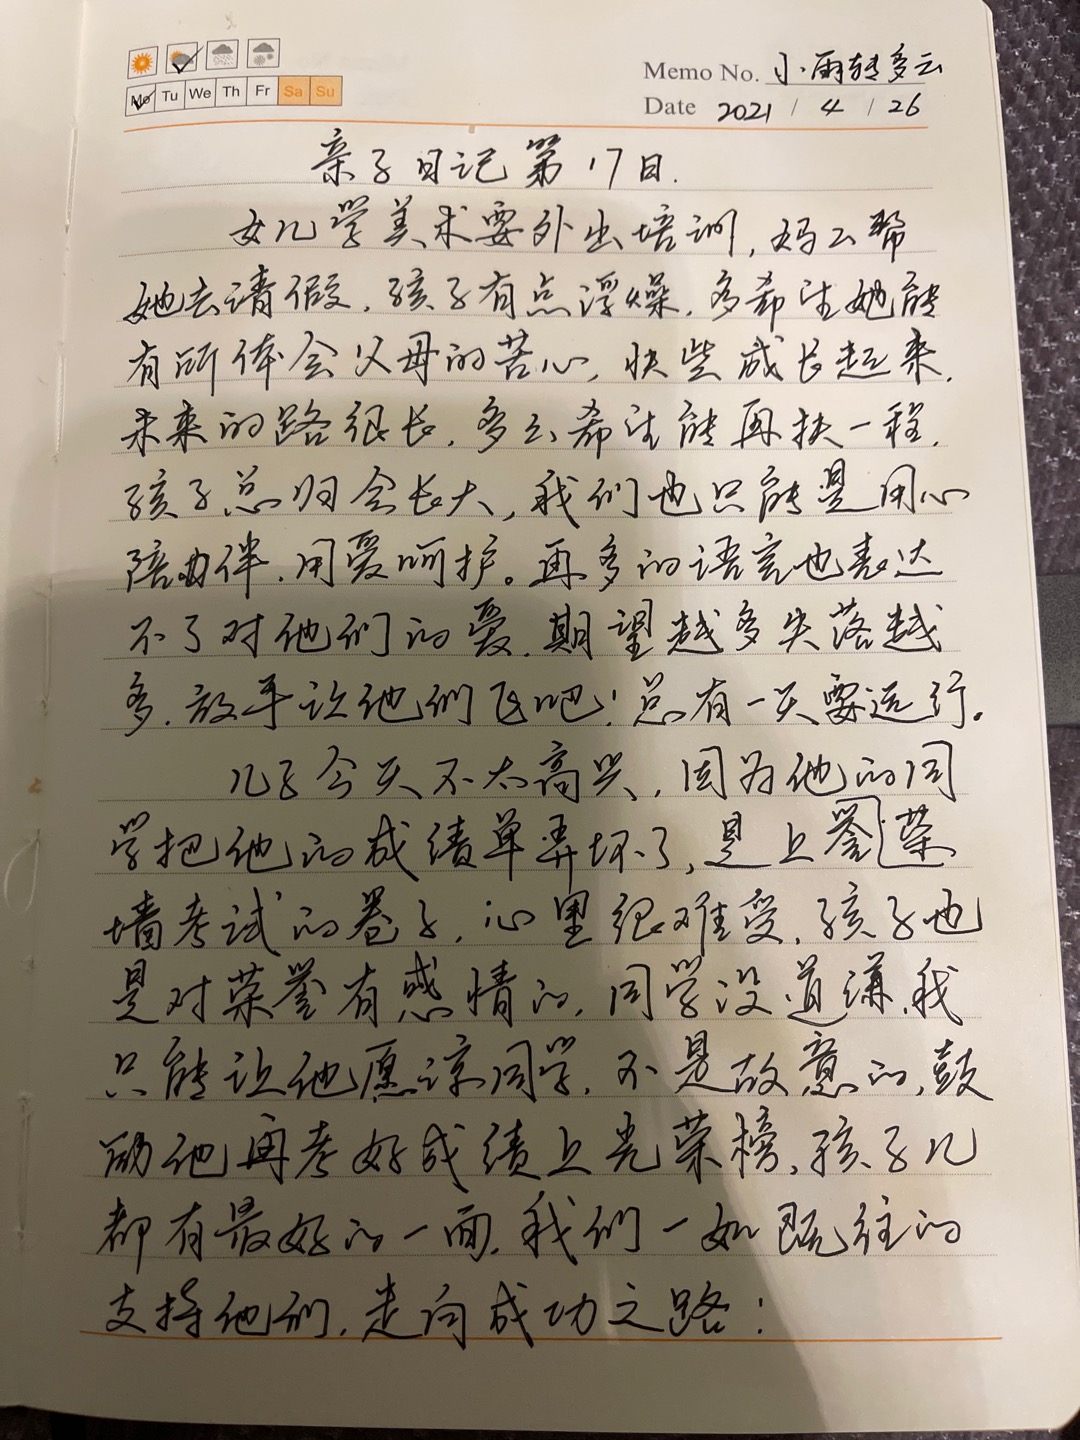 Mo Tu We Th Fr Sa Su
Memo No. 小雨转多云
Date 2021 / 4 / 26
亲子日记第17日.
女儿学美术要外出培训,妈么帮
她去请假,孩子有点浮燥,多希望她能
有所体会父母的苦心,快些成长起来,
未来的路很长,多么希望能再扶一程,
孩子总归会长大,我们也只能是用心
陪伴,用爱呵护。再多的语言也表达
不了对他们的爱,期望越多失落越
多,放手让他们飞吧!总有一天要远行。
儿子今天不太高兴,因为他的同
学把他的成绩单弄坏了,是上誉荣
墙考试的卷子,心里很难受,孩子也
是对荣誉有感情的,同学没道谦,我
只能让他愿谅同学,不是故意的,鼓
励他再考好成绩上光荣榜,孩子儿
都有最好的一面,我们一如既往的
支持他们,走向成功之路!